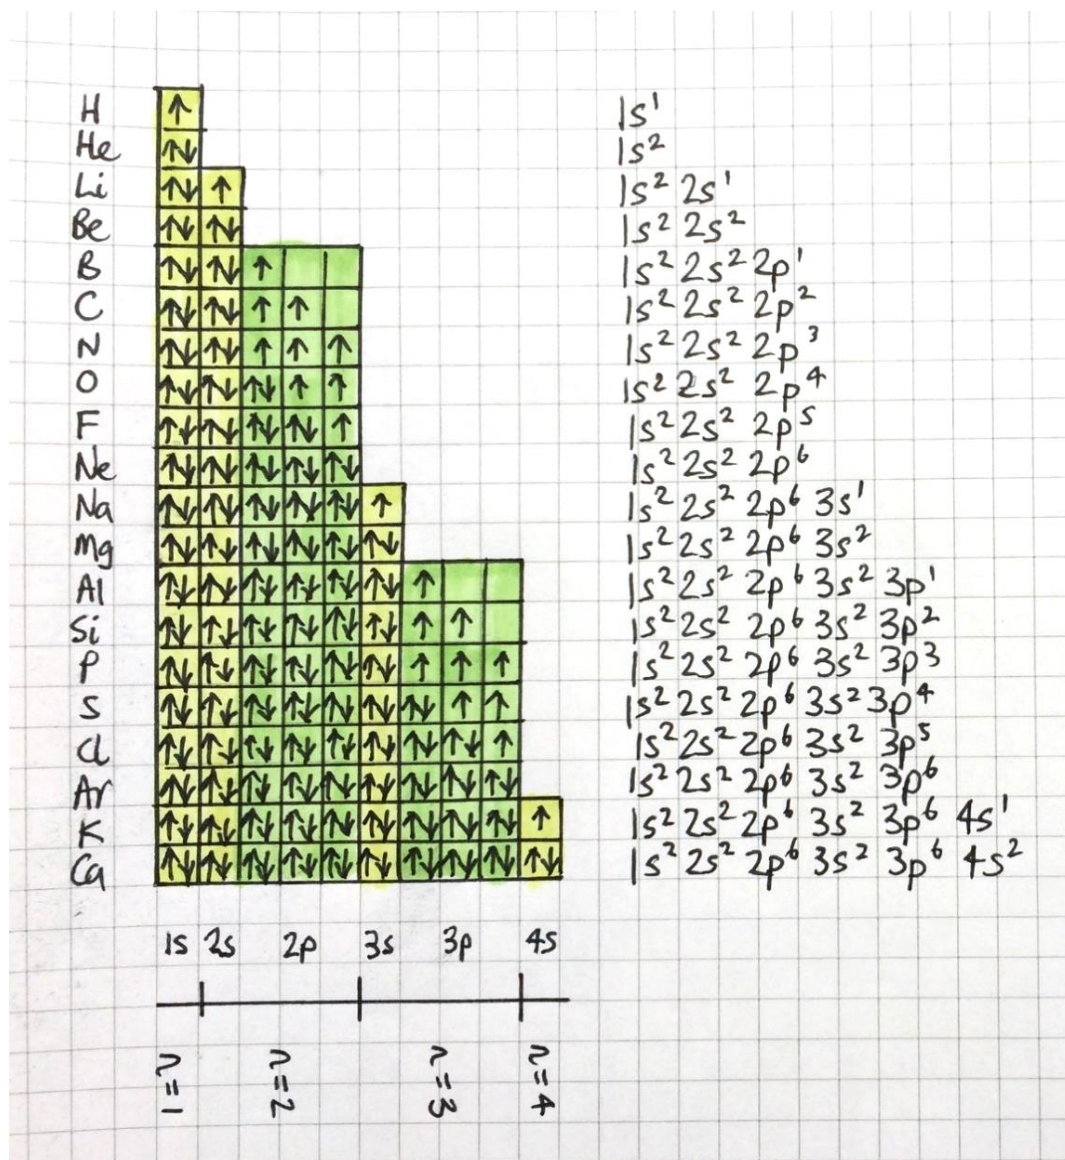 H ↑ 1s¹
He ↑↓ 1s²
Li ↑↓ ↑ 1s² 2s¹
Be ↑↓ ↑↓ 1s² 2s²
B ↑↓ ↑↓ ↑ 1s² 2s² 2p¹
C ↑↓ ↑↓ ↑ ↑ 1s² 2s² 2p²
N ↑↓ ↑↓ ↑ ↑ ↑ 1s² 2s² 2p³
O ↑↓ ↑↓ ↑↓ ↑ ↑ 1s² 2s² 2p⁴
F ↑↓ ↑↓ ↑↓ ↑↓ ↑ 1s² 2s² 2p⁵
Ne ↑↓ ↑↓ ↑↓ ↑↓ ↑↓ 1s² 2s² 2p⁶
Na ↑↓ ↑↓ ↑↓ ↑↓ ↑↓ ↑ 1s² 2s² 2p⁶ 3s¹
Mg ↑↓ ↑↓ ↑↓ ↑↓ ↑↓ ↑↓ 1s² 2s² 2p⁶ 3s²
Al ↑↓ ↑↓ ↑↓ ↑↓ ↑↓ ↑↓ ↑ 1s² 2s² 2p⁶ 3s² 3p¹
Si ↑↓ ↑↓ ↑↓ ↑↓ ↑↓ ↑↓ ↑ ↑ 1s² 2s² 2p⁶ 3s² 3p²
P ↑↓ ↑↓ ↑↓ ↑↓ ↑↓ ↑↓ ↑ ↑ ↑ 1s² 2s² 2p⁶ 3s² 3p³
S ↑↓ ↑↓ ↑↓ ↑↓ ↑↓ ↑↓ ↑↓ ↑ ↑ 1s² 2s² 2p⁶ 3s² 3p⁴
Cl ↑↓ ↑↓ ↑↓ ↑↓ ↑↓ ↑↓ ↑↓ ↑↓ ↑ 1s² 2s² 2p⁶ 3s² 3p⁵
Ar ↑↓ ↑↓ ↑↓ ↑↓ ↑↓ ↑↓ ↑↓ ↑↓ ↑↓ 1s² 2s² 2p⁶ 3s² 3p⁶
K ↑↓ ↑↓ ↑↓ ↑↓ ↑↓ ↑↓ ↑↓ ↑↓ ↑↓ ↑ 1s² 2s² 2p⁶ 3s² 3p⁶ 4s¹
Ca ↑↓ ↑↓ ↑↓ ↑↓ ↑↓ ↑↓ ↑↓ ↑↓ ↑↓ ↑↓ 1s² 2s² 2p⁶ 3s² 3p⁶ 4s²
1s 2s 2p 3s 3p 4s
n=1 n=2 n=3 n=4